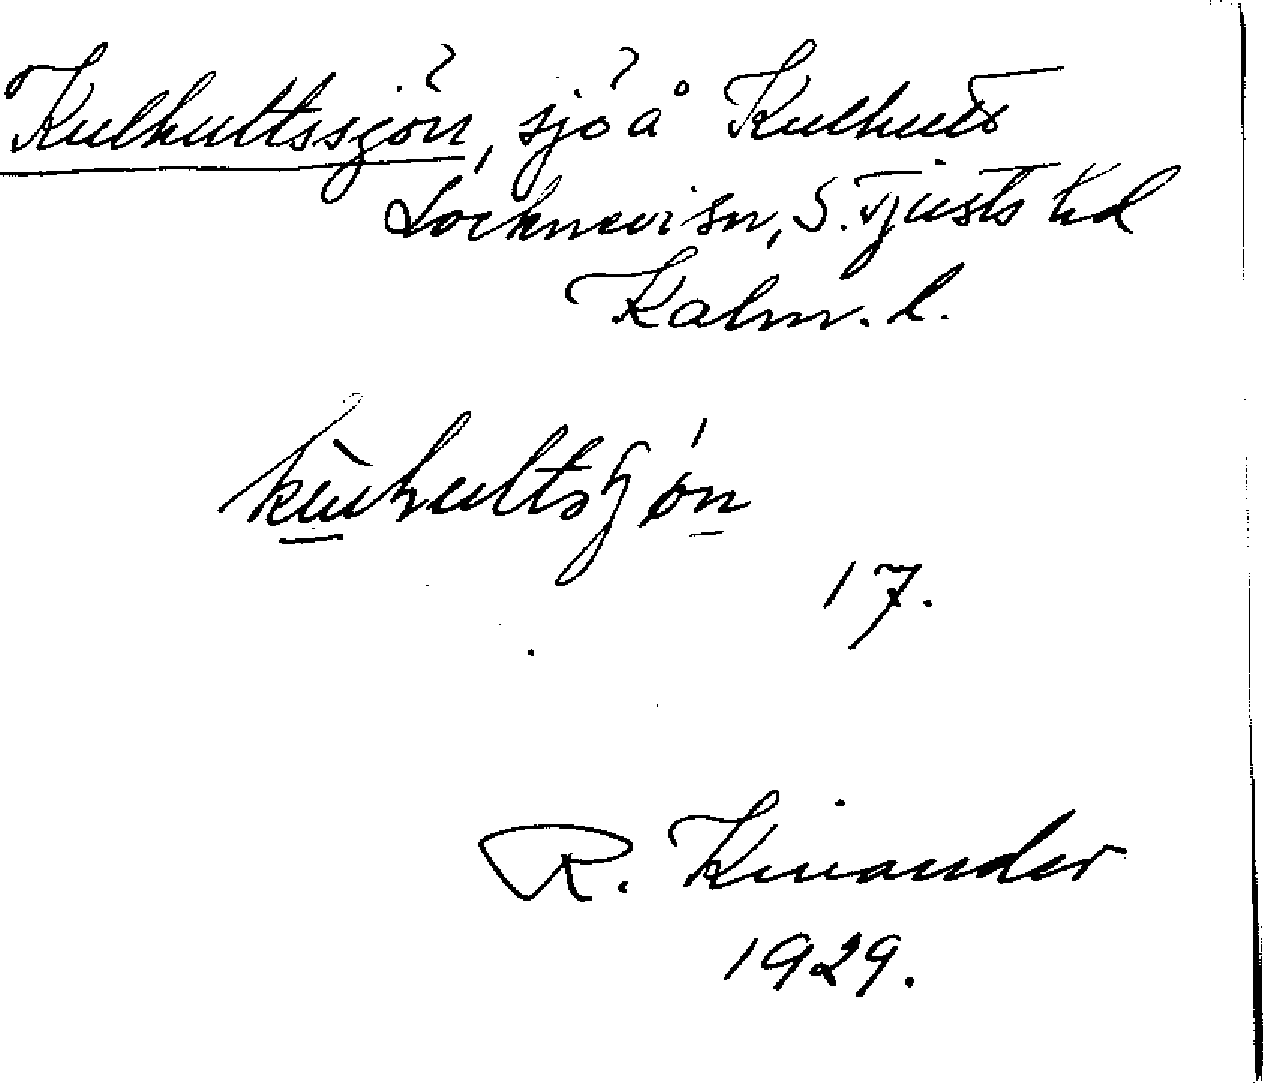 Kulhultssjön, sjö å Kulhult
Locknevi sn, S. Tjusts hd
Kalm. l.
kùhultsjón
17.
R. Kinander
1929.